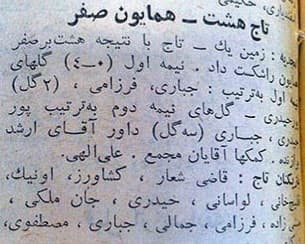 تاج هشت ــ همایون صفر
زمین یك ــ تاج با نتیجه هشت‌برصفر
را‌شکست داد . نیمه اول (۰ـ۴) گلهای
اول به‌ترتیب : جباری، فرزامی ، (۲گل)
حیدری ــ گل‌های نیمه دوم به‌ترتیب پور
حیدری جبــاری (سه‌گل) داور آقــای ارشد
. کمکها آقایان مجمع . علی‌الهی.
تاج : قاضی شعار ، کشاورز، اونیك،
لواسانی ، حیدری ، جان ملکی ،
زاده ، فرزامی ، جمالی ، جباری ، مصطفوی،